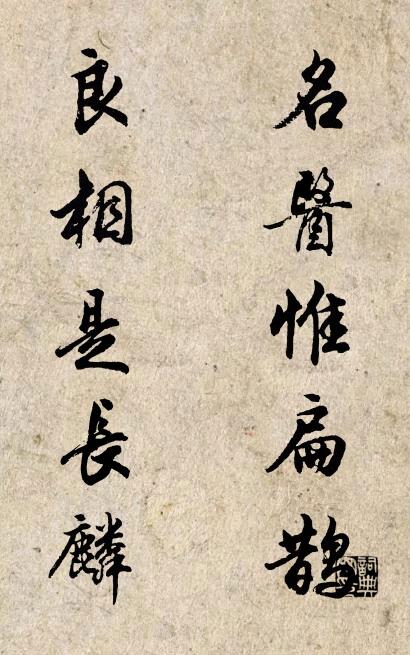 名醫惟扁鵲
良相是長麟
詞典